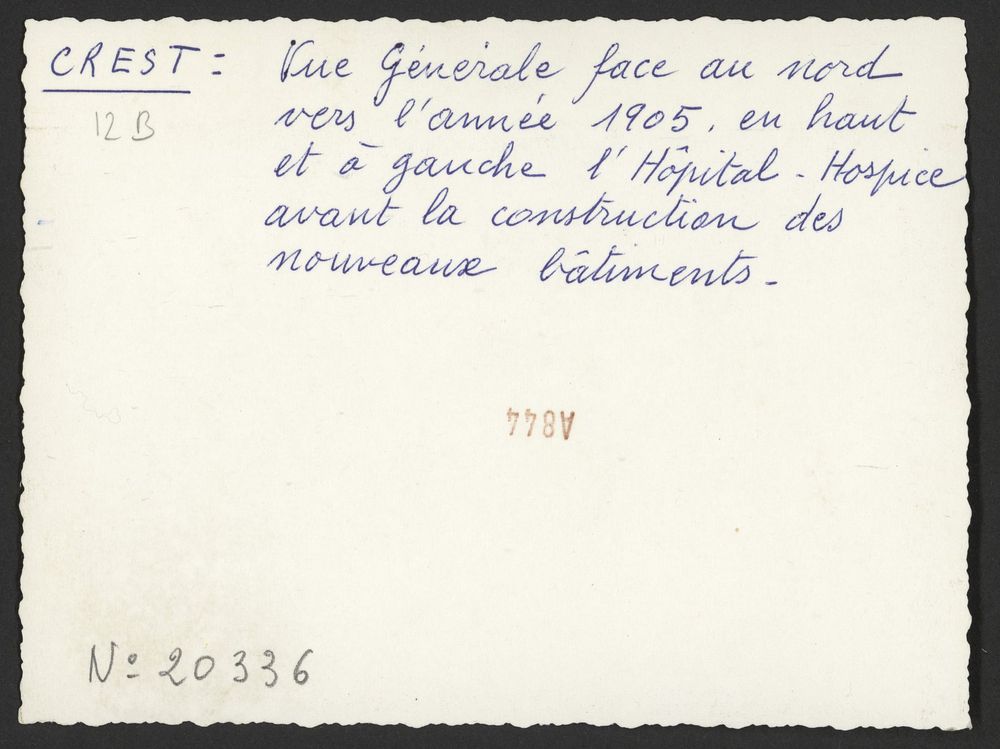 CREST : Vue Générale face au nord
12 B vers l'année 1905, en haut
et à gauche l'Hôpital - Hospice
avant la construction des
nouveaux bâtiments -
A844
Nº 20336